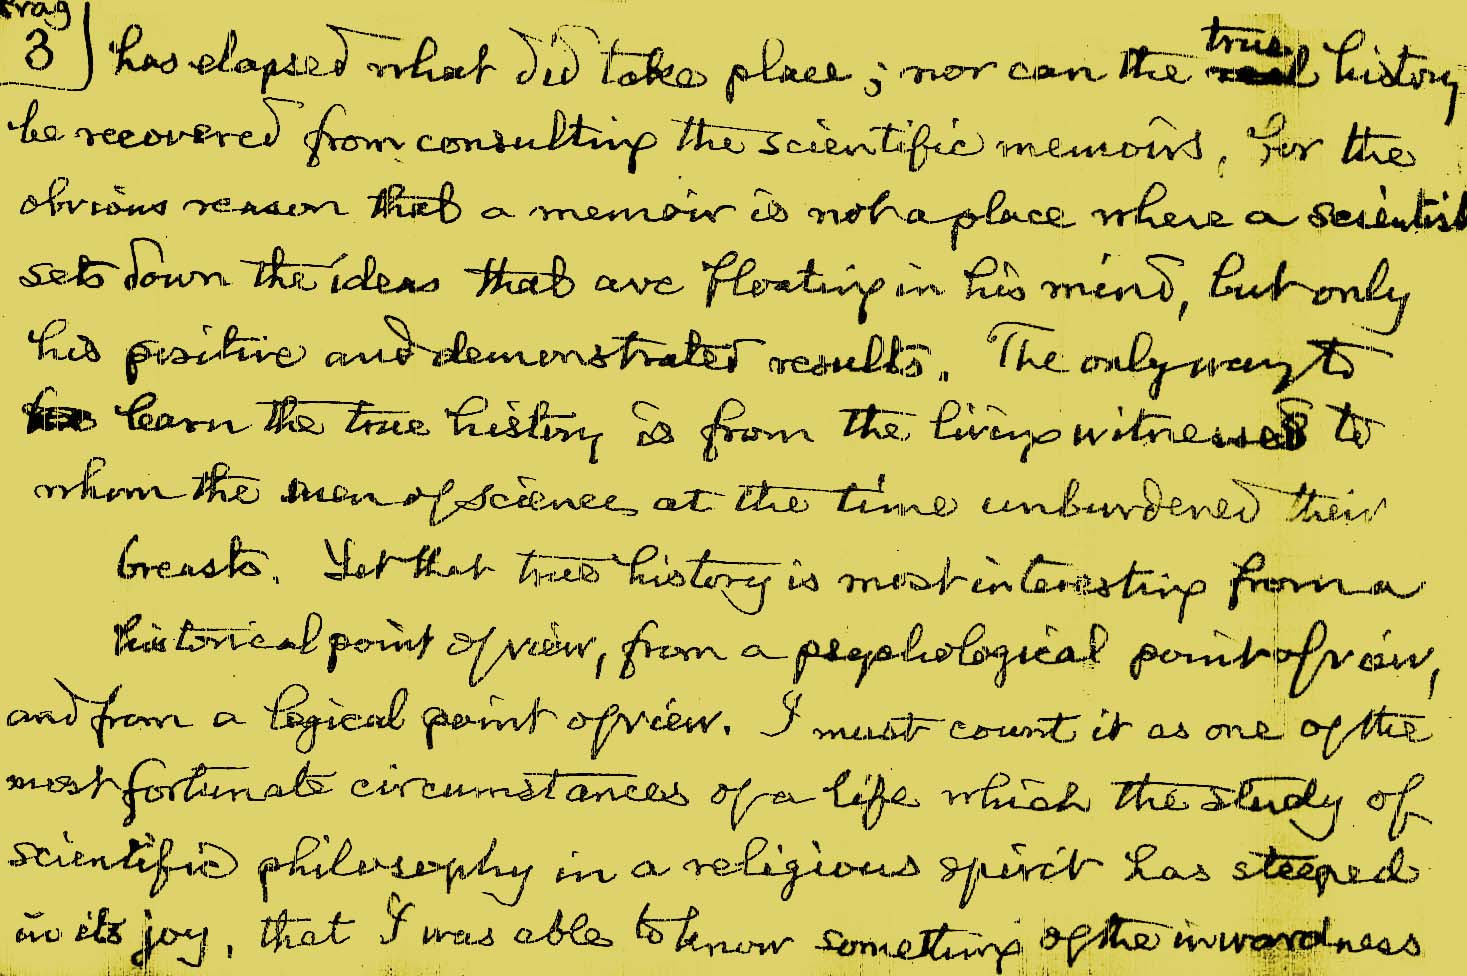 frag
3
has elapsed what did take place; nor can the true history
be recovered from consulting the scientific memoirs, for the
obvious reason that a memoir is not a place where a scientist
sets down the ideas that are floating in his mind, but only
his positive and demonstrated results. The only way to
learn the true history is from the living witnesses to
whom the men of science at the time unburdened their
breasts. Yet that true history is most interesting from a
historical point of view, from a psychological point of view,
and from a logical point of view. I must count it as one of the
most fortunate circumstances of a life which the study of
scientific philosophy in a religious spirit has steeped
in its joy, that I was able to know something of the inwardness